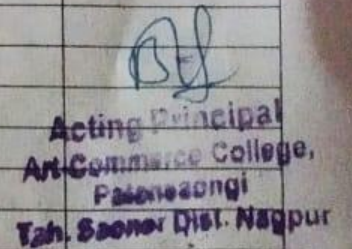 Acting Principal
Art Commerce College,
Patansaongi
Tah. Saoner Dist. Nagpur